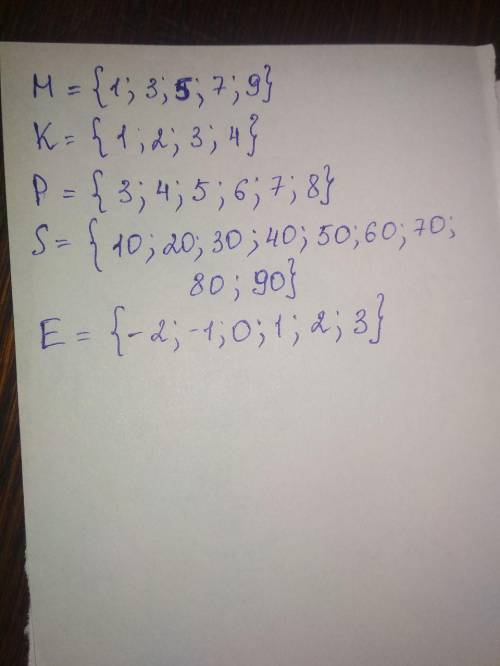 M = {1; 3; 5; 7; 9}
K = {1; 2; 3; 4}
P = {3; 4; 5; 6; 7; 8}
S = {10; 20; 30; 40; 50; 60; 70;
80; 90}
E = {-2; -1; 0; 1; 2; 3}